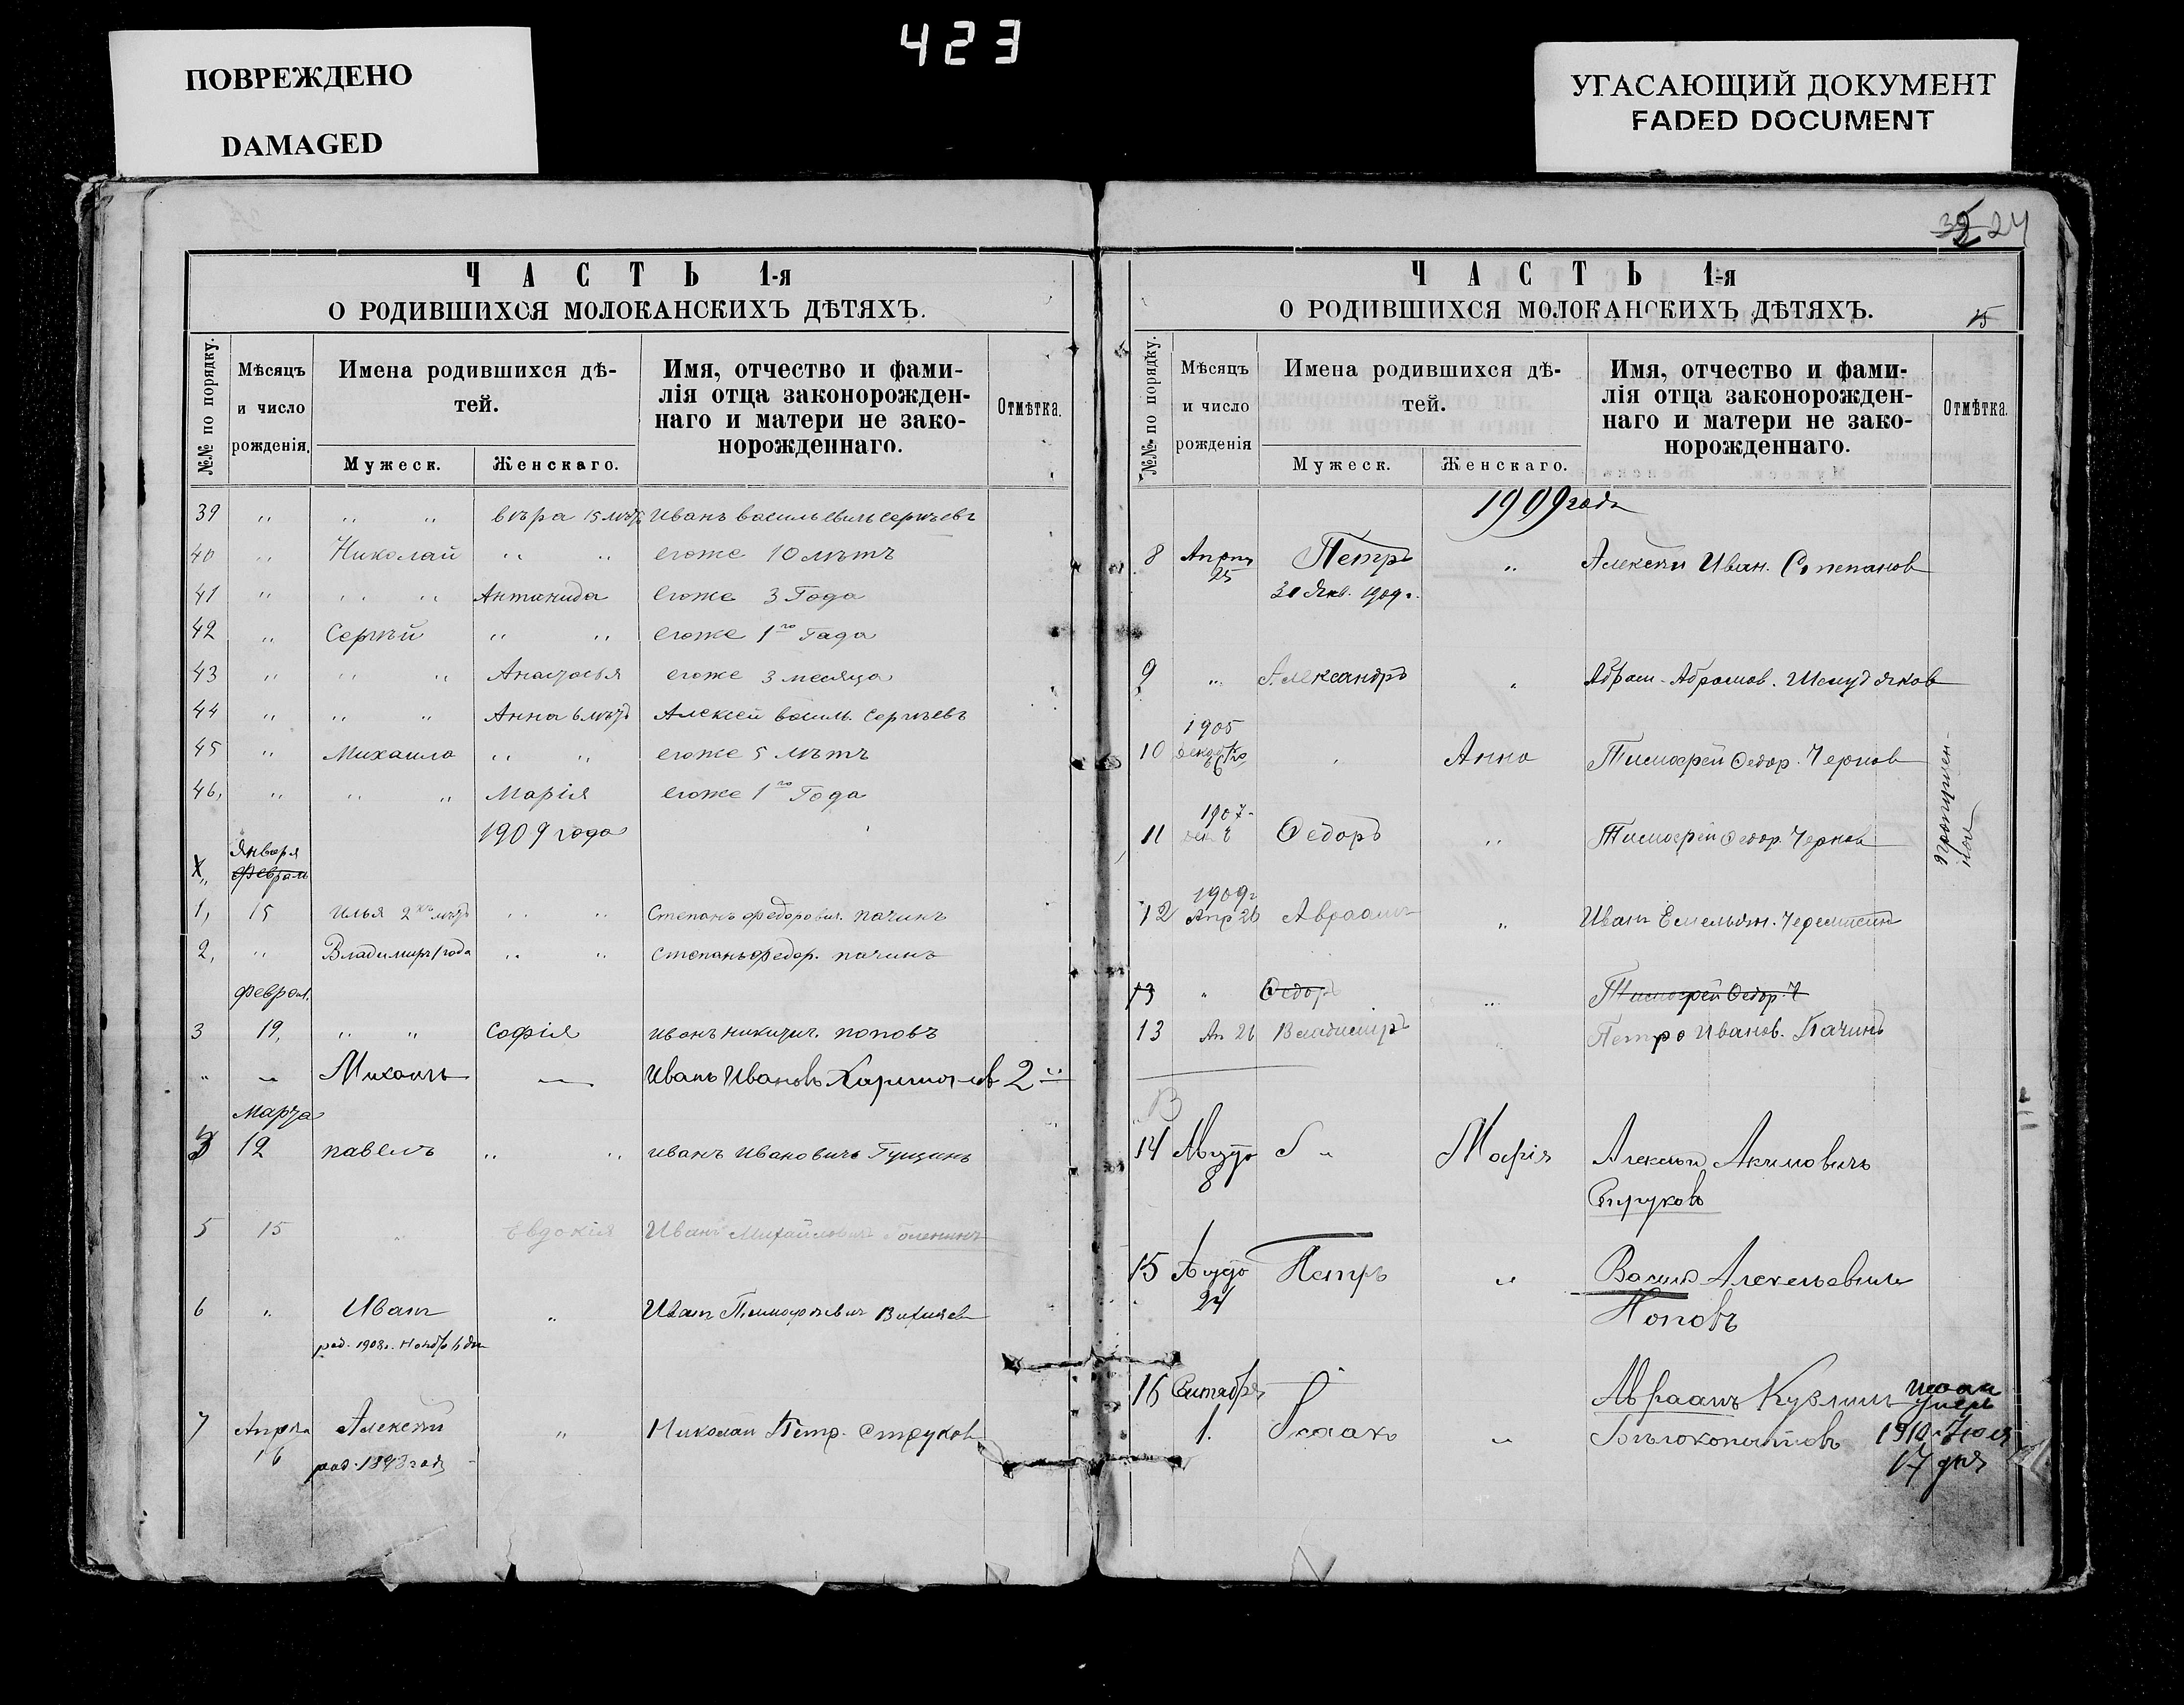 423
ПОВРЕЖДЕНО
DAMAGED
УГАСАЮЩИЙ ДОКУМЕНТ
FADED DOCUMENT
ЧАСТЬ 1-я
О РОДИВШИХСЯ МОЛОКАНСКИХЪ ДѢТЯХЪ.
№№ по порядку.
Мѣсяцъ и число рожденія.
Имена родившихся дѣтей.
Мужеск.
Женскаго.
Имя, отчество и фами-
лія отца законорожден-
наго и матери не зако-
норожденнаго.
Отмѣтка.
39 " " " вѣра 15 лѣтъ Иванъ васильевичь сергѣевъ
40 " Николай " " егоже 10 лѣтъ
41 " " " Антанида егоже 3 Года
42 " Сергѣй " " егоже 1го Года
43 " " " Анастосья егоже 3 месяца
44 " " " Анна 6 лѣтъ Алексей василь. Сергѣевъ
45 " Михаила " " егоже 5 лѣтъ
46, " " " Марія егоже 1го Года
1909 года
Января
февраль
1, 15 Илья 2хъ лѣтъ " " Степанъ Федорович. пачинъ
2, " Владимиръ 1 года " " Степанъ федор. пачинъ
Феврал.
3 19, " " Софія иванъ никитич. поповъ
" " Михаилъ — Иванъ Ивановъ 2
Марта
12 павелъ " " иванъ Ивановичь Гущинъ
5 15 " Евдокія Иванъ Михайловичъ
6 " Иванъ " Иванъ Тимофѣевичъ
род. 1908 г. Ноябр 6 дня
7 Апрѣля Алексѣй " Николай Петр. Струков
16 род. 1898 году
32 24
ЧАСТЬ 1-я
О РОДИВШИХСЯ МОЛОКАНСКИХЪ ДѢТЯХЪ.
15
№№ по порядку.
Мѣсяцъ и число рожденія
Имена родившихся дѣтей.
Мужеск.
Женскаго.
Имя, отчество и фами-
лія отца законорожден-
наго и матери не зако-
норожденнаго.
Отмѣтка.
1909 года
8 Апрѣля Петръ " Алексѣй Иван. Степанов
25 30 Янв. 1909 г.
9 " Александръ " Абрам. Абрамов. Шемудяков
1905
10 Декаб. 6 " Анна Тимофей Федор. Чернов
1907
11 Ѳедоръ " Тимофей Федор. Чернов
1909 г
12 Апр 26 Авраамъ " Иванъ Емельян. Черемисин
13 " Ѳедоръ " Тимофей Ѳедор. Ч
13 Ап 26 Владимиръ " Петро Иванов. Пачинъ
14 Августа " Марія Алексѣй Акимовичъ
8 Струковъ
15 Августа Петръ " Василій Алексеевичъ
24 Поповъ
16 Сентября Авраамъ Кузмичъ
1. Исаакъ " Бѣлокопытовъ
умеръ
1910 Июля
17 дня